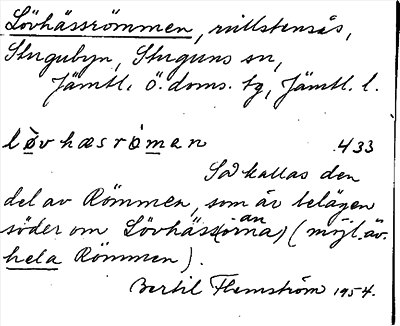 Lövhässrömmen, rullstensås,
Stugubyn, Stuguns sn,
Jämtl. ö. doms. tg, Jämtl. l.
lòvhæsrö̀mən 433
Så kallas den
del av Römmen, som är belägen
an
söder om Lövhäss(örna) (möjl. äv.
hela Römmen).
Bertil Flemström 1954.